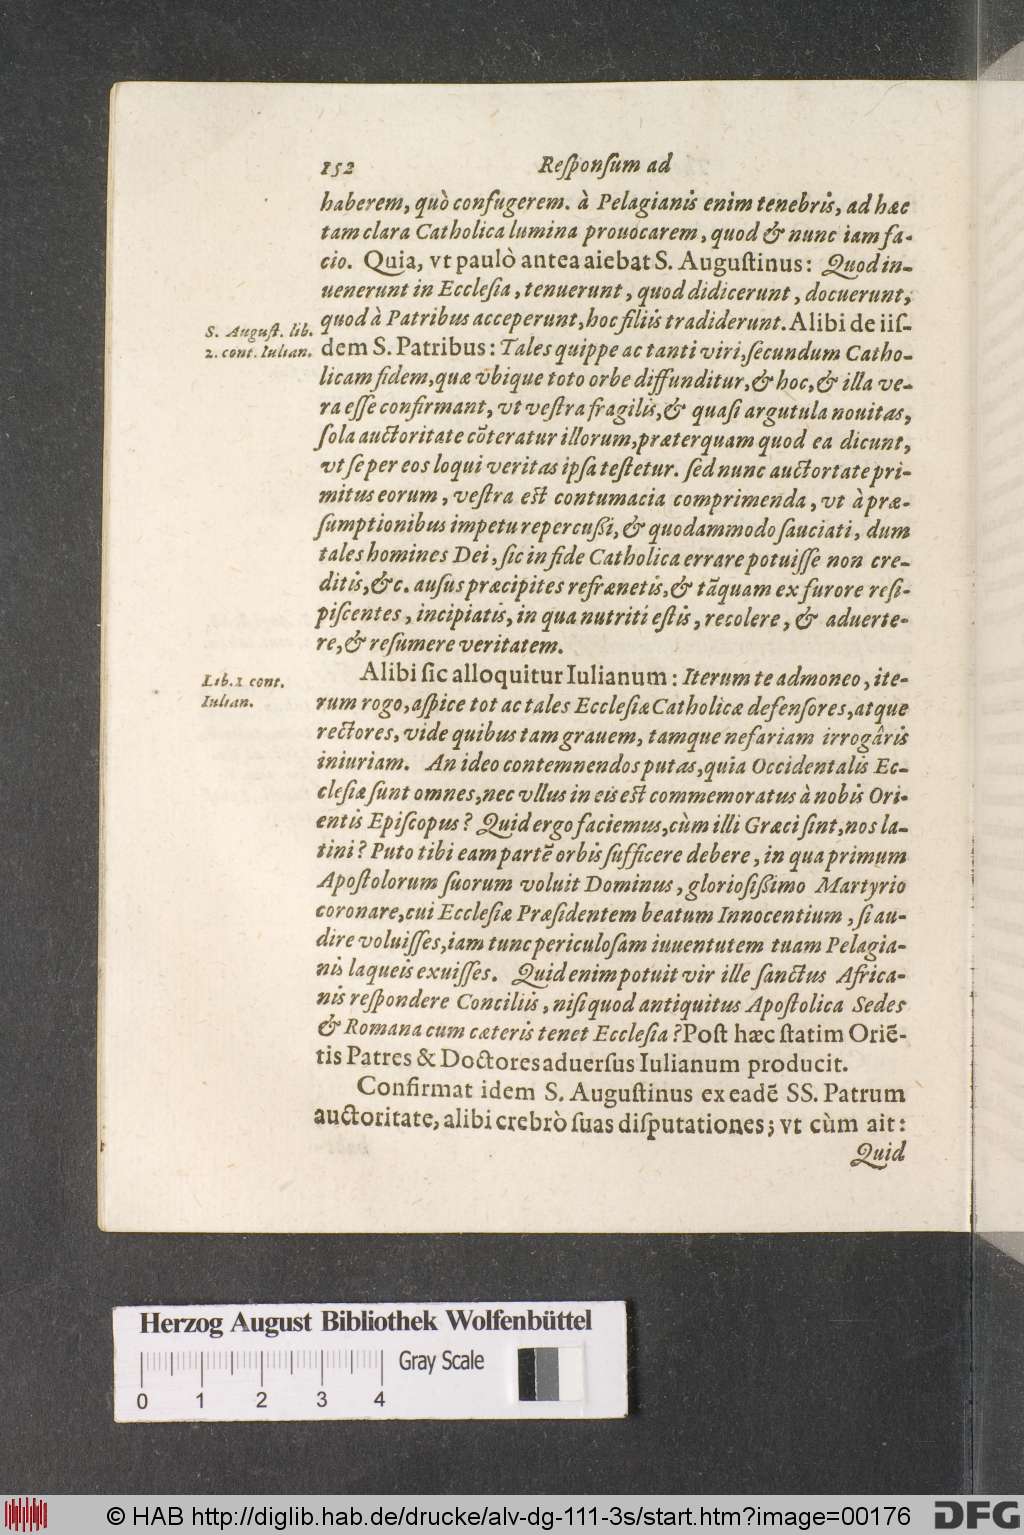 152 Reſponſum ad
haberem, quò confugerem. à Pelagianis enim tenebris, ad hæc
tam clara Catholica lumina prouocarem, quod & nunc iam fa-
cio. Quia, vt paulò antea aiebat S. Auguſtinus: Quod in-
uenerunt in Eccleſia, tenuerunt, quod didicerunt, docuerunt,
quod à Patribus acceperunt, hoc filiis tradiderunt. Alibi de iiſ-
S. Auguſt. lib.
2. cont. Iulian.
dem S. Patribus: Tales quippe ac tanti viri, ſecundum Catho-
licam fidem, quæ vbique toto orbe diffunditur, & hoc, & illa ve-
ra eſſe confirmant, vt veſtra fragilis, & quaſi argutula nouitas,
ſola auctoritate cõteratur illorum, præterquam quod ea dicunt,
vt ſe per eos loqui veritas ipſa teſtetur. ſed nunc auctortate pri-
mitus eorum, veſtra eſt contumacia comprimenda, vt à præ-
ſumptionibus impetu repercußi, & quodammodo ſauciati, dum
tales homines Dei, ſic in fide Catholica errare potuiſſe non cre-
ditis, &c. auſus præcipites refrænetis, & tãquam ex furore reſi-
piſcentes, incipiatis, in qua nutriti eſtis, recolere, & aduerte-
re, & reſumere veritatem.
Alibi ſic alloquitur Iulianum: Iterum te admoneo, ite-
Lib. 1 cont.
Iulian.
rum rogo, aſpice tot ac tales Eccleſiæ Catholicæ defenſores, atque
rectores, vide quibus tam grauem, tamque nefariam irrogâris
iniuriam. An ideo contemnendos putas, quia Occidentalis Ec-
cleſiæ ſunt omnes, nec vllus in eis eſt commemoratus à nobis Ori-
entis Epiſcopus? Quid ergo faciemus, cùm illi Græci ſint, nos la-
tini? Puto tibi eam partẽ orbis ſufficere debere, in qua primum
Apoſtolorum ſuorum voluit Dominus, glorioſißimo Martyrio
coronare, cui Eccleſiæ Præſidentem beatum Innocentium, ſi au-
dire voluiſſes, iam tunc periculoſam iuuentutem tuam Pelagia-
nis laqueis exuiſſes. Quid enim potuit vir ille ſanctus Africa-
nis reſpondere Conciliis, niſi quod antiquitus Apoſtolica Sedes
& Romana cum cæteris tenet Eccleſia? Poſt hæc ſtatim Oriẽ-
tis Patres & Doctores aduerſus Iulianum producit.
Confirmat idem S. Auguſtinus ex eadẽ SS. Patrum
auctoritate, alibi crebrò ſuas diſputationes; vt cùm ait:
Quid
Herzog August Bibliothek Wolfenbüttel
Gray Scale
0 1 2 3 4
© HAB http://diglib.hab.de/drucke/alv-dg-111-3s/start.htm?image=00176
DFG